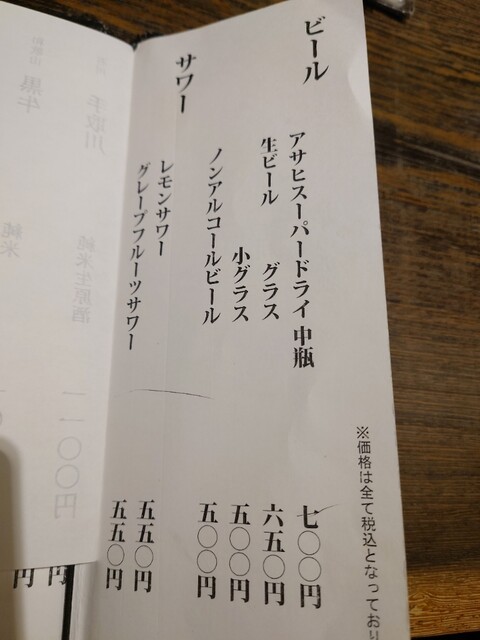 ビール
アサヒスーパードライ 中瓶 七〇〇円
生ビール グラス 六五〇円
小グラス 五〇〇円
ノンアルコールビール 五〇〇円
サワー
レモンサワー 五五〇円
グレープフルーツサワー 五五〇円
※価格は全て税込となっており
手取川
純米生原酒
一一〇〇円
黒牛
純米
円
円